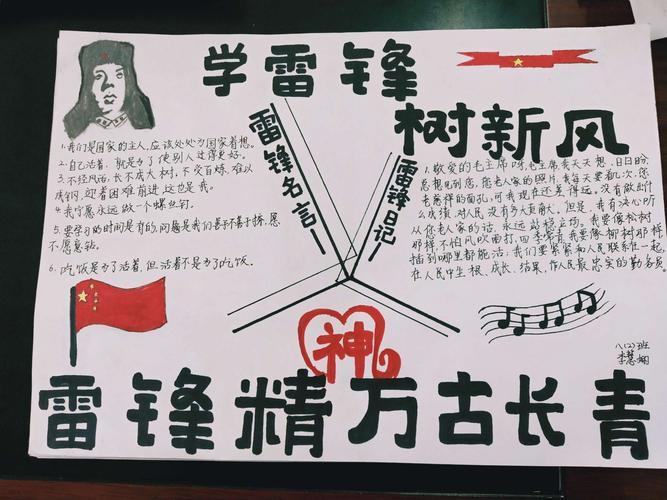 学雷锋
树新风
雷锋名言
1.我们是国家的主人，应该处处为国家着想。
2.自己活着，就是为了使别人过得更好。
3.不经风雨，长不成大树，不受百炼，难以
成钢，迎着困难前进，这也是我。
4.我宁愿永远做一个螺丝钉。
5.要学习的时间是有的，问题是我们善于不善于挤，愿
不愿意钻。
6.吃饭是为了活着，但活着不是为了吃饭。
雷锋日记
1.敬爱的毛主席呀，毛主席我天天想，日日盼
总想见到您，您老人家的照片，我每天要看几次，您
老慈祥的面孔，可我现在还差得远，没有做出什
么成绩，对人民没有多大贡献。但是，我有决心听
从您老人家的话，永远站稳立场。我要像松树
那样，不怕风吹雨打，四季常青，我要像柳树那样
插到哪里都能活；我们要紧紧和人民联系在一起，
在人民中生根、成长、结果，作人民最忠实的勤务员
八(2)班
李慧
神
雷锋精万古长青